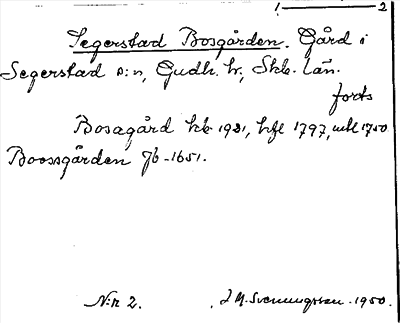 1 — 2
Segerstad Bosgården. Gård i
Segerstad s:n, Gudh. hr, Skb. län.
forts
Bosagård kb 1921, hfl 1797, mtl 1750
Boossgården Jb -1651.
N:r 2. J M. Svenungsson. 1950.